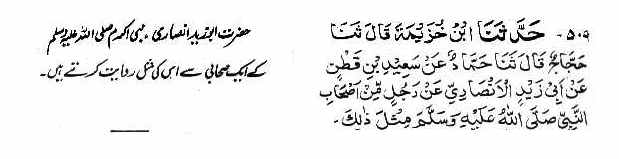 ۵۰۹- حَدَّثَنَا ابْنُ خُزَيْمَةَ قَالَ ثَنَا
حَجَّاجٌ قَالَ ثَنَا حَمَّادٌ عَنْ سَعِيْدِ بْنِ قَطَنٍ
عَنْ اَبِيْ زَيْدٍ الْاَنْصَارِيِّ عَنْ رَجُلٍ مِّنْ اَصْحَابِ
النَّبِيِّ صَلَّى اللهُ عَلَيْهِ وَسَلَّمَ مِثْلَ ذٰلِكَ۔
حضرت ابوزید انصاری، نبی اکرم صلی اللہ علیہ وسلم
کے ایک صحابی سے اس کی مثل روایت کرتے ہیں۔